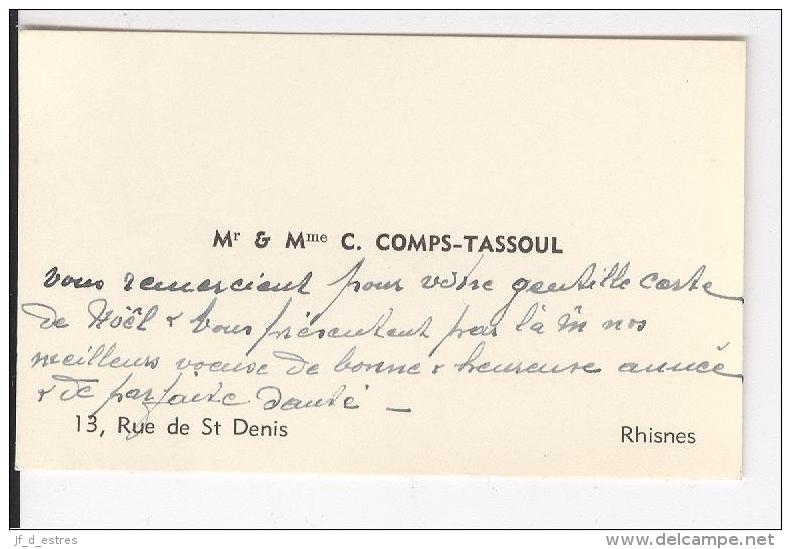 Mr & Mme C. COMPS-TASSOUL
vous remercient pour votre gentille carte
de Noël & vous présentent par là m̃ nos
meilleurs voeuse de bonne & heureuse année
& de parfaite santé —
13, Rue de St Denis Rhisnes
jf_d_estres
delcampe.net